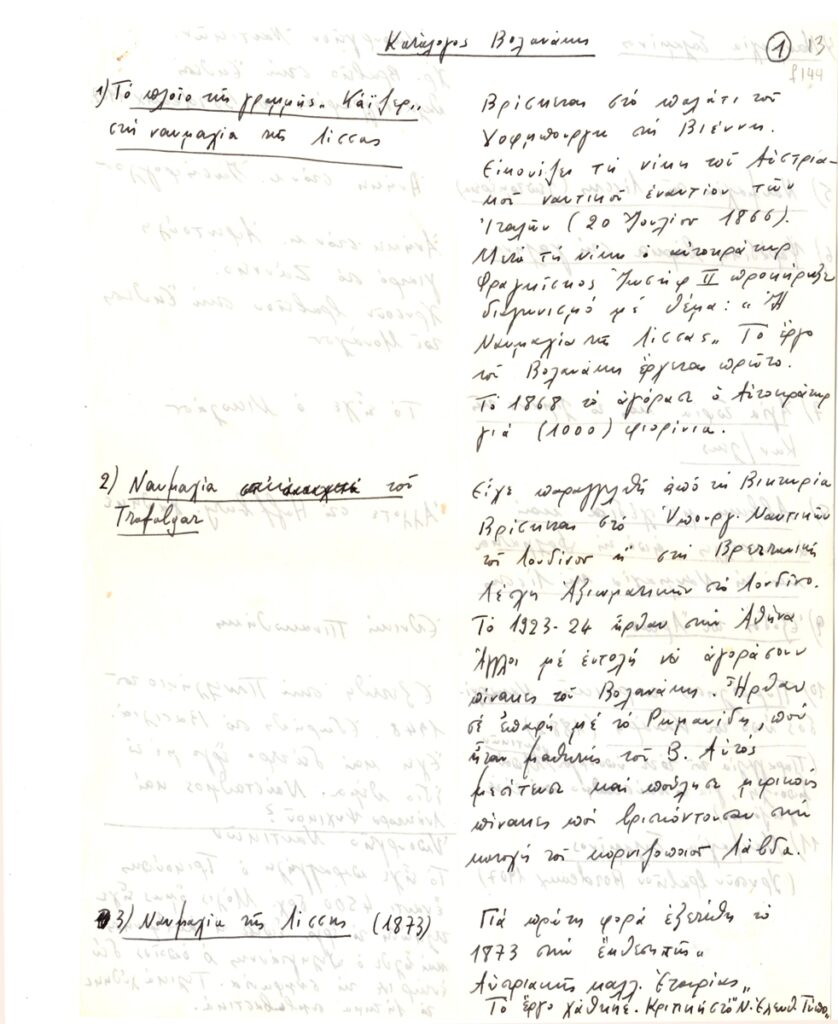 Κατάλογος Βολανάκης
1 13
144
1) Τό πλοῖο τῆς γραμμῆς „Κάϊζερ„
στή ναυμαχία τῆς Λίσσας
Βρίσκεται στό παλάτι τοῦ
Χόφμπουργκ στή Βιέννη.
Εἰκονίζει τή νίκη τοῦ Αὐστρια-
κοῦ ναυτικοῦ ἐναντίον τῶν
Ἰταλῶν (20 Ἰουλίου 1866).
Μετά τή νίκη ὁ αὐτοκράτωρ
Φραγκίσκος Ἰωσήφ II προκήρυξε
διαγωνισμό μέ θέμα: „Ἡ
Ναυμαχία τῆς Λίσσας„ Τό ἔργο
τοῦ Βολανάκη ἔρχεται πρῶτο.
Τό 1868 τό ἀγόρασε ὁ Αὐτοκράτωρ
γιά (1000) φιορίνια.
2) Ναυμαχία τοῦ
Trafalgar
Εἶχε παραγγελθῆ ἀπό τή Βικτωρία
Βρίσκεται στό Ὑπουργ. Ναυτικῶν
τοῦ Λονδίνου ἤ στή Βρεττανική
Λέσχη Ἀξιωματικῶν στό Λονδίνο.
Τό 1923-24 ἦρθαν στήν Ἀθήνα
Ἄγγλοι μέ ἐντολή νά ἀγοράσουν
πίνακες τοῦ Βολανάκη. Ἦρθαν
σέ ἐπαφή μέ τό Ρωμανίδη, πού
ἦταν μαθητής τοῦ Β. Αὐτός
μεσίτευσε καί πούλησε μερικούς
πίνακες πού βρισκόντουσαν στήν
κατοχή τοῦ κορνιζοποιοῦ Λάβδα.
3) Ναυμαχία τῆς Λίσσης (1873)
Γιά πρώτη φορά ἐξετέθη τό
1873 στήν ἔκθεση τῆς „
Αὐστριακῆς καλλ. Ἑταιρίας„
Τό ἔργο χάθηκε. Κριτική στό "Ν. Ἐλευθ. Τύπο.